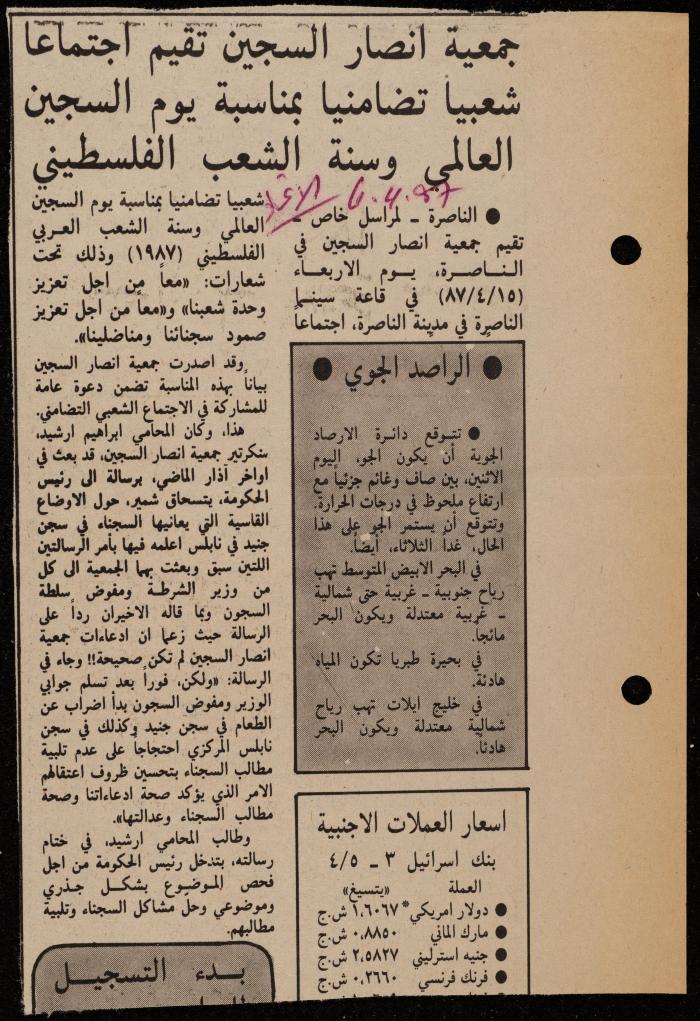 جمعية انصار السجين تقيم اجتماعا
شعبيا تضامنيا بمناسبة يوم السجين
العالمي وسنة الشعب الفلسطيني
٦.٤.٨٧
● الناصرة ــ لمراسل خاص ــ
تقيم جمعية انصار السجين في
الناصرة، يوم الاربعاء
(٨٧/٤/١٥) في قاعة سينما
الناصرة في مدينة الناصرة، اجتماعاً
شعبيا تضامنيا بمناسبة يوم السجين
العالمي وسنة الشعب العربي
الفلسطيني (١٩٨٧) وذلك تحت
شعارات: «معاً من اجل تعزيز
وحدة شعبنا» و«معاً من اجل تعزيز
صمود سجنائنا ومناضلينا».
وقد اصدرت جمعية انصار السجين
بياناً بهذه المناسبة تضمن دعوة عامة
للمشاركة في الاجتماع الشعبي التضامني.
هذا، وكان المحامي ابراهيم ارشيد،
سكرتير جمعية انصار السجين، قد بعث في
اواخر آذار الماضي، برسالة الى رئيس
الحكومة، يتسحاق شمير، حول الاوضاع
القاسية التي يعانيها السجناء في سجن
جنيد في نابلس اعلمه فيها بأمر الرسالتين
اللتين سبق وبعثت بهما الجمعية الى كل
من وزير الشرطة ومفوض سلطة
السجون وبما قاله الاخيران رداً على
الرسالة حيث زعما ان ادعاءات جمعية
انصار السجين لم تكن صحيحة!! وجاء في
الرسالة: «ولكن، فوراً بعد تسلم جوابي
الوزير ومفوض السجون بدأ اضراب عن
الطعام في سجن جنيد وكذلك في سجن
نابلس المركزي احتجاجاً على عدم تلبية
مطالب السجناء بتحسين ظروف اعتقالهم
الامر الذي يؤكد صحة ادعاءاتنا وصحة
مطالب السجناء وعدالتها».
وطالب المحامي ارشيد، في ختام
رسالته، بتدخل رئيس الحكومة من اجل
فحص الموضوع بشكل جذري
وموضوعي وحل مشاكل السجناء وتلبية
مطالبهم.
● الراصد الجوي ●
● تتوقع دائرة الارصاد
الجوية أن يكون الجو، اليوم
الاثنين، بين صاف وغائم جزئياً مع
ارتفاع ملحوظ في درجات الحرارة.
وتتوقع أن يستمر الجو على هذا
الحال، غداً الثلاثاء، ايضاً.
في البحر الابيض المتوسط تهب
رياح جنوبية ــ غربية حتى شمالية
ــ غربية معتدلة ويكون البحر
مائجاً.
في بحيرة طبريا تكون المياه
هادئة.
في خليج ايلات تهب رياح
شمالية معتدلة ويكون البحر
هادئاً.
اسعار العملات الاجنبية
بنك اسرائيل ٣ ــ ٤/٥
العملة «يتسيغ»
● دولار امريكي* ١,٦٠٦٧ ش.ج
● مارك الماني ٠,٨٨٥٠ ش.ج
● جنيه استرليني ٢,٥٨٢٧ ش.ج
● فرنك فرنسي ٠,٢٦٦٠ ش.ج
بدء التسجيل